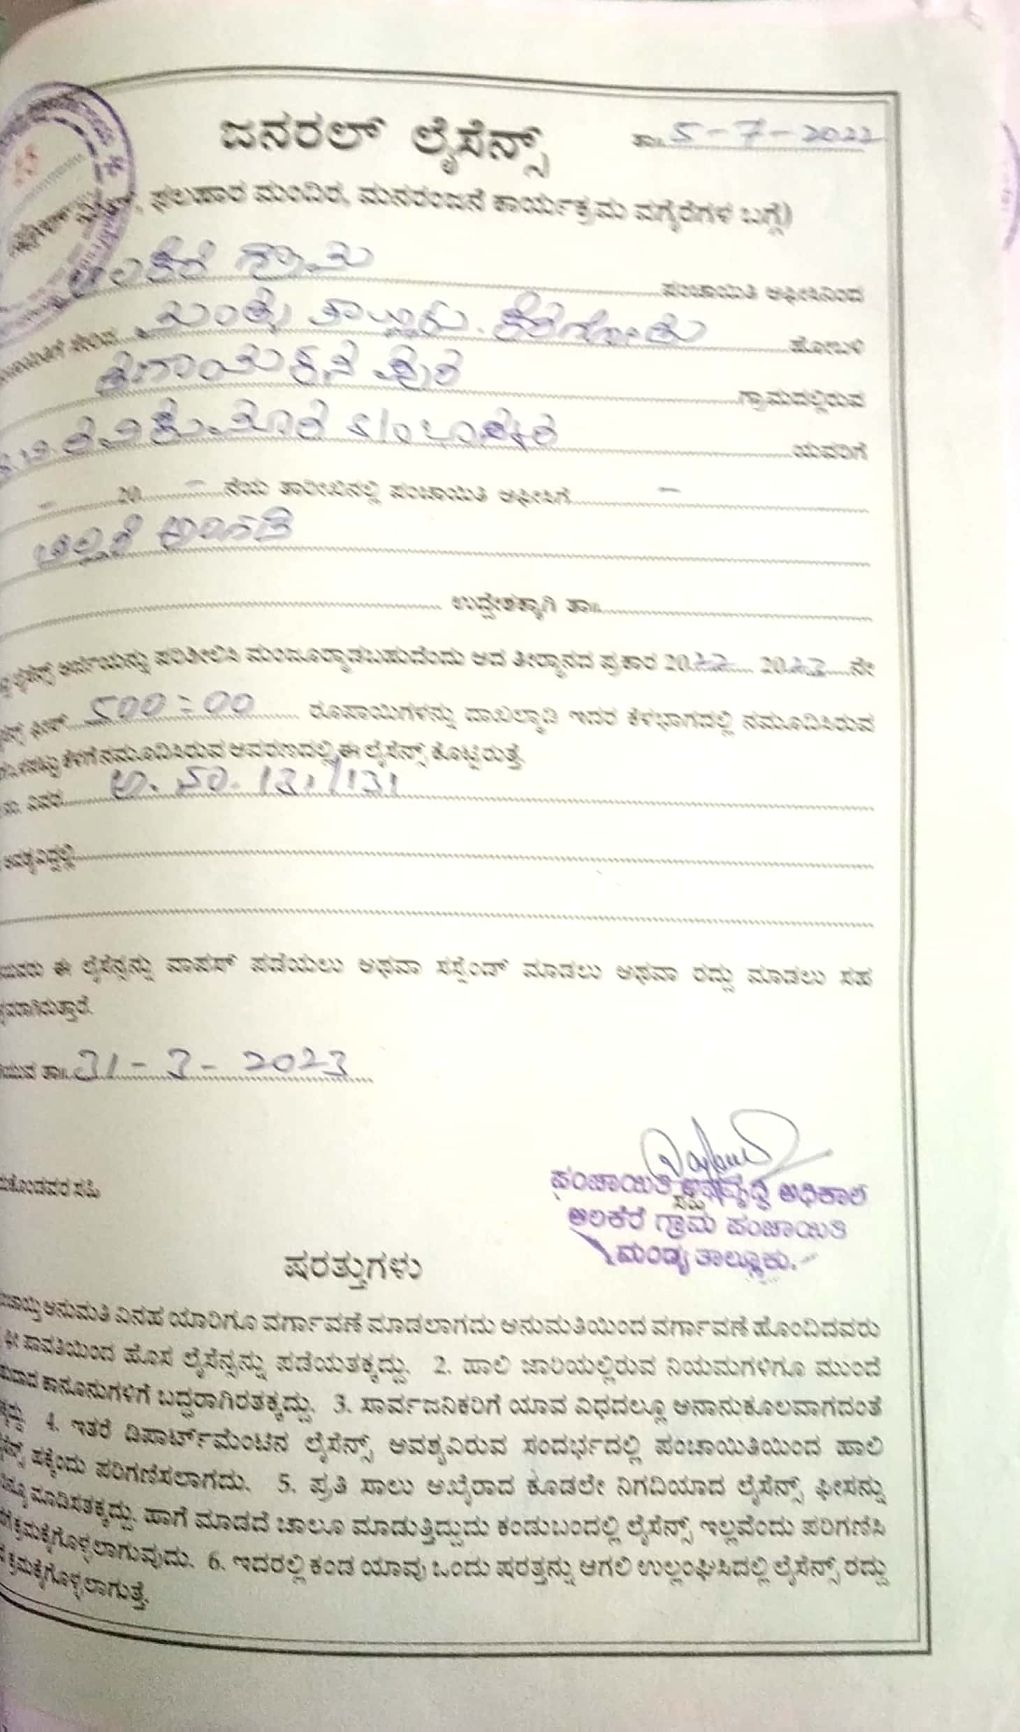 ಜನರಲ್ ಲೈಸೆನ್ಸ್ ತಾ॥ 5-7-2022
ಫಲಹಾರ ಮಂದಿರ, ಮನರಂಜನೆ ಕಾರ್ಯಕ್ರಮ ವಗೈರೆಗಳ ಬಗ್ಗೆ)
ಆಲಕೆರೆ ಗ್ರಾಮ ಪಂಚಾಯಿತಿ ಆಫೀಸಿನಿಂದ
ಸೇರಿದ ಮಂಡ್ಯ ತಾಲ್ಲೂಕು. ಹೋಬಳಿ
ಗ್ರಾಮದಲ್ಲಿರುವ
S/o ಯವರಿಗೆ
– 20 – ನೆಯ ತಾರೀಖಿನಲ್ಲಿ ಪಂಚಾಯಿತಿ ಆಫೀಸಿಗೆ –
ಚಿಲ್ಲರೆ ಅಂಗಡಿ
ಉದ್ದೇಶಕ್ಕಾಗಿ ತಾ॥
ಲೈಸೆನ್ಸ್ ಅರ್ಜಿಯನ್ನು ಪರಿಶೀಲಿಸಿ ಮಂಜೂರ್ಮಾಡಬಹುದೆಂದು ಆದ ತೀರ್ಮಾನದ ಪ್ರಕಾರ 2022 2023 ನೇ
ಫೀಸ್ 500=00 ರೂಪಾಯಿಗಳನ್ನು ದಾಖಲ್ಮಾಡಿ ಇದರ ಕೆಳಭಾಗದಲ್ಲಿ ನಮೂದಿಸಿರುವ
ಕೆಳಗೆ ನಮೂದಿಸಿರುವ ಆವರಣದಲ್ಲಿ ಈ ಲೈಸೆನ್ಸ್ ಕೊಟ್ಟಿರುತ್ತೆ.
ನಂ. ವಿವರ ಅ. ನಂ. 131/131
ಅವಶ್ಯವಿದ್ದಲ್ಲಿ
ಯವರು ಈ ಲೈಸೆನ್ಸನ್ನು ವಾಪಸ್ ಪಡೆಯಲು ಅಥವಾ ಸಸ್ಪೆಂಡ್ ಮಾಡಲು ಅಥವಾ ರದ್ದು ಮಾಡಲು ಸಹ
ತಾ॥ 31-3-2023
ಸಹಿ
ಪಂಚಾಯಿತಿ ಅಭಿವೃದ್ಧಿ ಅಧಿಕಾರಿ
ಸಹಿ
ಆಲಕೆರೆ ಗ್ರಾಮ ಪಂಚಾಯಿತಿ
ಮಂಡ್ಯ ತಾಲ್ಲೂಕು.
ಷರತ್ತುಗಳು
ಅನುಮತಿ ವಿನಹ ಯಾರಿಗೂ ವರ್ಗಾವಣೆ ಮಾಡಲಾಗದು ಅನುಮತಿಯಿಂದ ವರ್ಗಾವಣೆ ಹೊಂದಿದವರು
ಹೊಸ ಲೈಸೆನ್ಸನ್ನು ಪಡೆಯತಕ್ಕದ್ದು. 2. ಹಾಲಿ ಜಾರಿಯಲ್ಲಿರುವ ನಿಯಮಗಳಿಗೂ ಮುಂದೆ
ಕಾನೂನುಗಳಿಗೆ ಬದ್ಧರಾಗಿರತಕ್ಕದ್ದು. 3. ಸಾರ್ವಜನಿಕರಿಗೆ ಯಾವ ವಿಧದಲ್ಲೂ ಅನಾನುಕೂಲವಾಗದಂತೆ
4. ಇತರೆ ಡಿಪಾರ್ಟ್‌ಮೆಂಟಿನ ಲೈಸೆನ್ಸ್ ಅವಶ್ಯವಿರುವ ಸಂದರ್ಭದಲ್ಲಿ ಪಂಚಾಯಿತಿಯಿಂದ ಹಾಲಿ
ಪರಿಗಣಿಸಲಾಗದು. 5. ಪ್ರತಿ ಸಾಲು ಅಖೈರಾದ ಕೂಡಲೇ ನಿಗದಿಯಾದ ಲೈಸೆನ್ಸ್ ಫೀಸನ್ನು
ಮಾಡಿಸತಕ್ಕದ್ದು. ಹಾಗೆ ಮಾಡದೆ ಚಾಲೂ ಮಾಡುತ್ತಿದ್ದುದು ಕಂಡುಬಂದಲ್ಲಿ ಲೈಸೆನ್ಸ್ ಇಲ್ಲವೆಂದು ಪರಿಗಣಿಸಿ
ಕ್ರಮಕೈಗೊಳ್ಳಲಾಗುವುದು. 6. ಇದರಲ್ಲಿ ಕಂಡ ಯಾವು ಒಂದು ಷರತ್ತನ್ನು ಆಗಲಿ ಉಲ್ಲಂಘಿಸಿದಲ್ಲಿ ಲೈಸೆನ್ಸ್ ರದ್ದು
ಕ್ರಮಕೈಗೊಳ್ಳಲಾಗುತ್ತೆ.